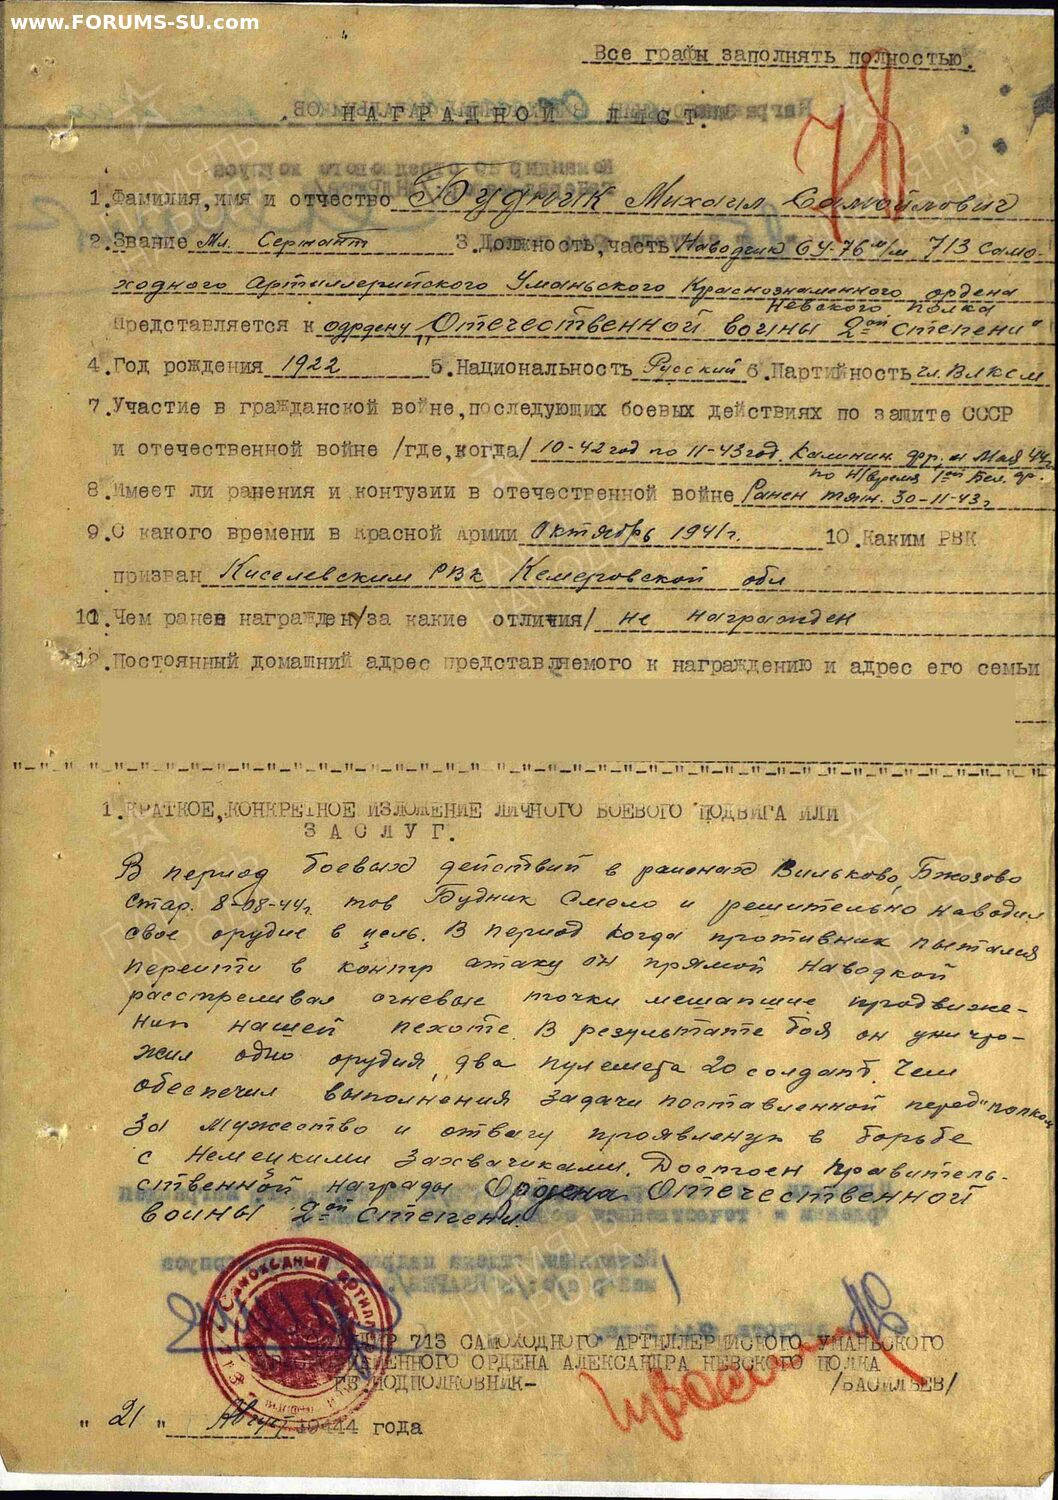 www.FORUMS-SU.com
Все графы заполнять полностью.
НАГРАДНОЙ ЛИСТ.
1.Фамилия,имя и отчество Будник Михаил Самойлович
2.Звание Мл. Сержант 3.Должность,часть Наводчик СУ-76 м/м 713 Само-
ходного Артиллерийского Уманьского Краснознаменного ордена
Невского полка
Представляется к одрдену "Отечественной войны 2ой степени"
4.Год рождения 1922 5.Национальность Русский 6.Партийность чл.ВЛКСМ
7.Участие в гражданской войне,последующих боевых действиях по защите СССР
и отечественной войне /где,когда/ 10-42 год по 11-43 год. Калинин. фр. с Мая 44г
по н/время 1ой Бел. фр.
8.Имеет ли ранения и контузии в отечественной войне Ранен тяж. 30-11-43г
9.С какого времени в Красной Армии Октябрь 1941г. 10.Каким РВК
призван Киселевским РВК Кемеровской обл
11.Чем ранее награжден/за какие отличия/ не награжден
12.Постоянный домашний адрес представляемого к награждению и адрес его семьи
1.КРАТКОЕ,КОНКРЕТНОЕ ИЗЛОЖЕНИЕ ЛИЧНОГО БОЕВОГО ПОДВИГА ИЛИ
ЗАСЛУГ.
В период боевых действий в районах Вильково, Бжозово
стар. 8-08-44г. тов Будник Смело и решительно наводил
свое орудие в цель. В период когда противник пытался
перейти в контр атаку он прямой наводкой
расстреливал огневые точки мешавшие продвиже-
нию нашей пехоте. В результате боя он уничто-
жил одно орудия, два пулемета 20 солдат. Чем
обеспечил выполнения задачи поставленной перед полком
За мужество и отвагу проявленную в борьбе
с немецкими захвачиками. Достоен правитель-
ственной награды Ордена Отечественной
войны 2ой степени.
КОМАНДИР 713 САМОХОДНОГО АРТИЛЛЕРИЙСКОГО УМАНЬСКОГО
КРАСНОЗНАМЕННОГО ОРДЕНА АЛЕКСАНДРА НЕВСКОГО ПОЛКА
ГВ ПОДПОЛКОВНИК- /ВАСИЛЬЕВ/
" 21 " Август 1944 года